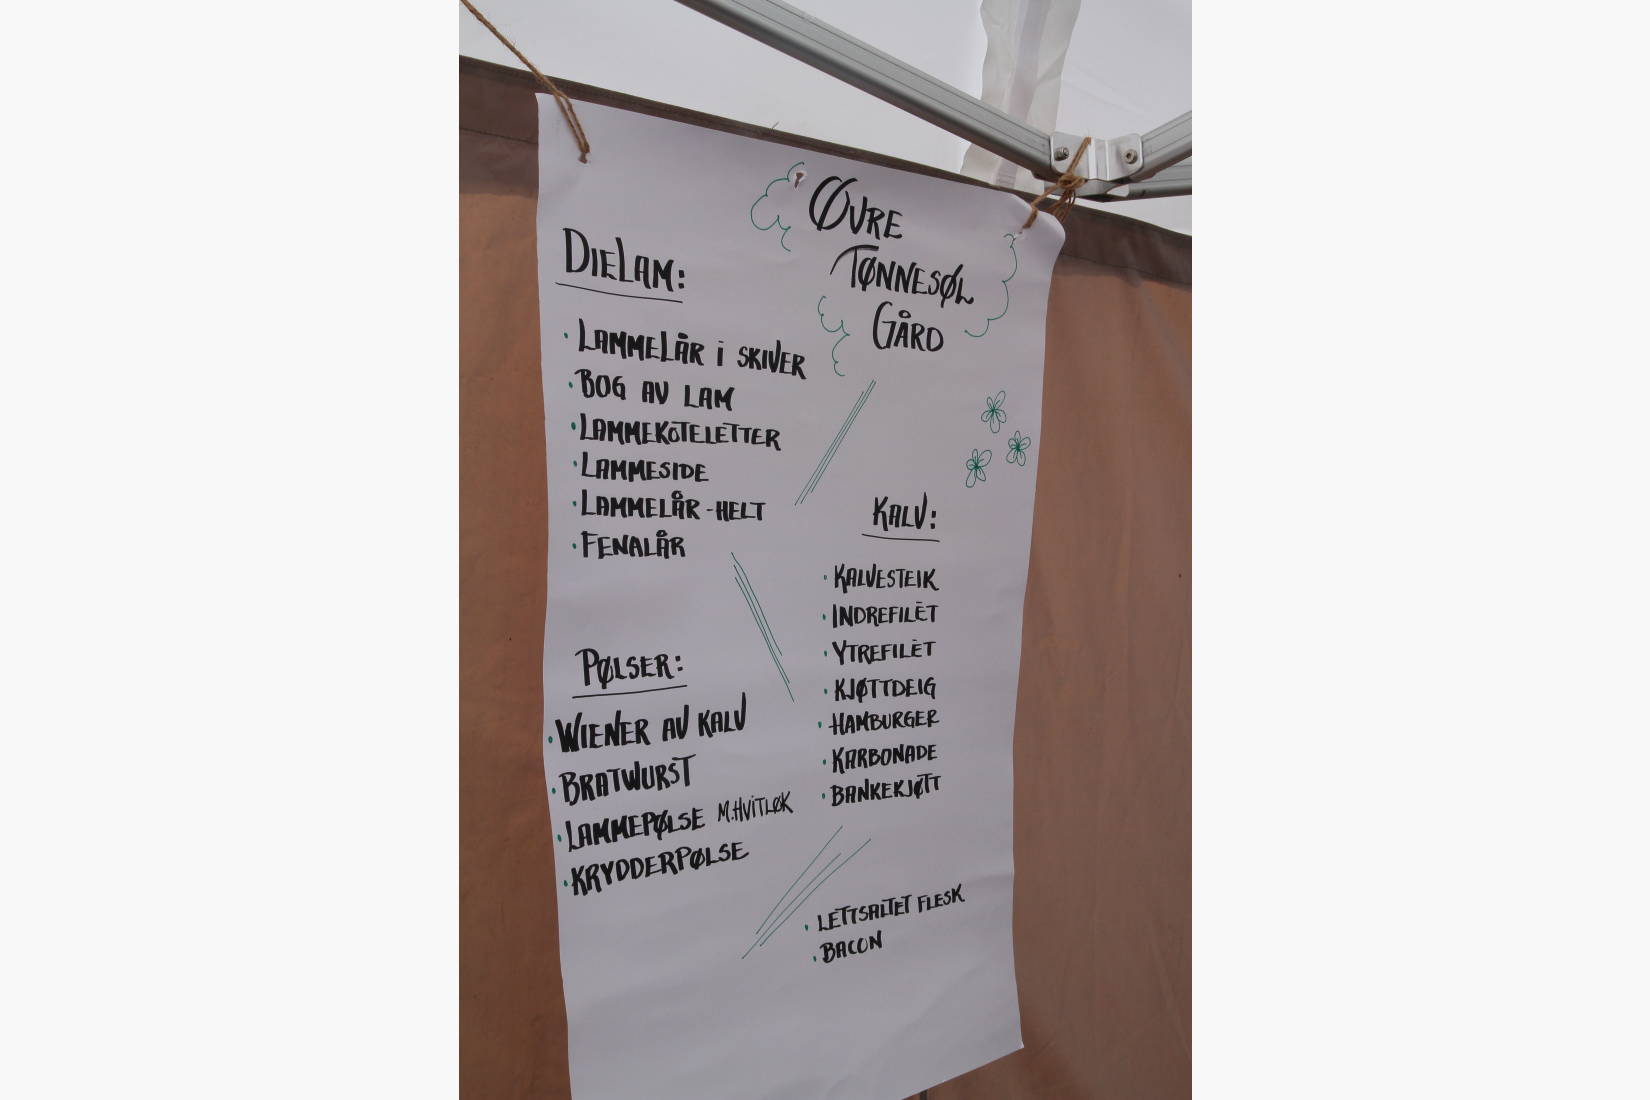 ØVRE
TØNNESØL
GÅRD
DIELAM:
· LAMMELÅR I SKIVER
· BOG AV LAM
· LAMMEKOTELETTER
· LAMMESIDE
· LAMMELÅR - HELT
· FENALÅR
PØLSER:
· WIENER AV KALV
· BRATWURST
· LAMMEPØLSE M.HVITLØK
· KRYDDERPØLSE
KALV:
· KALVESTEIK
· INDREFILÈT
· YTREFILÈT
· KJØTTDEIG
· HAMBURGER
· KARBONADE
· BANKEKJØTT
· LETTSALTET FLESK
· BACON